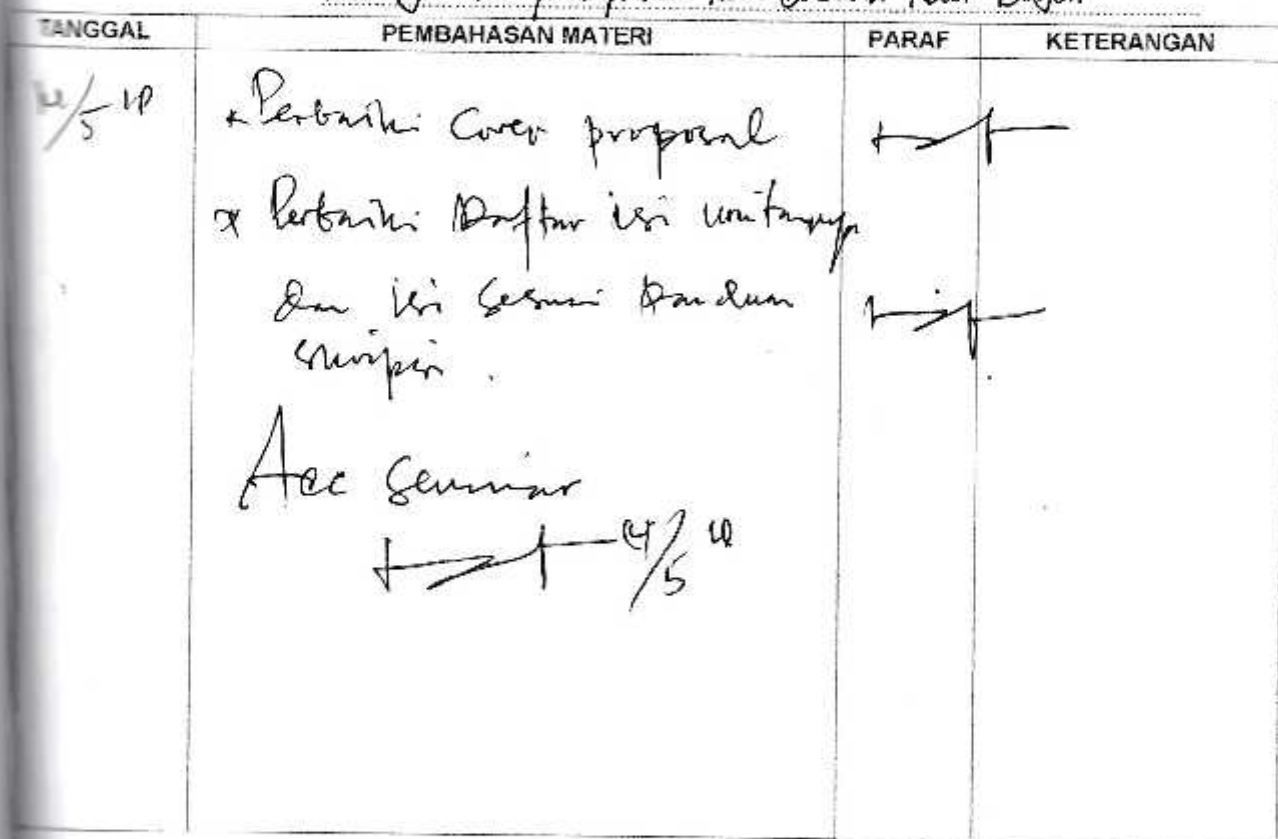 TANGGAL PEMBAHASAN MATERI PARAF KETERANGAN
* Perbaiki Cover proposal
* Perbaiki Daftar isi
dan isi sesuai Panduan
skripsi.
Acc Seminar